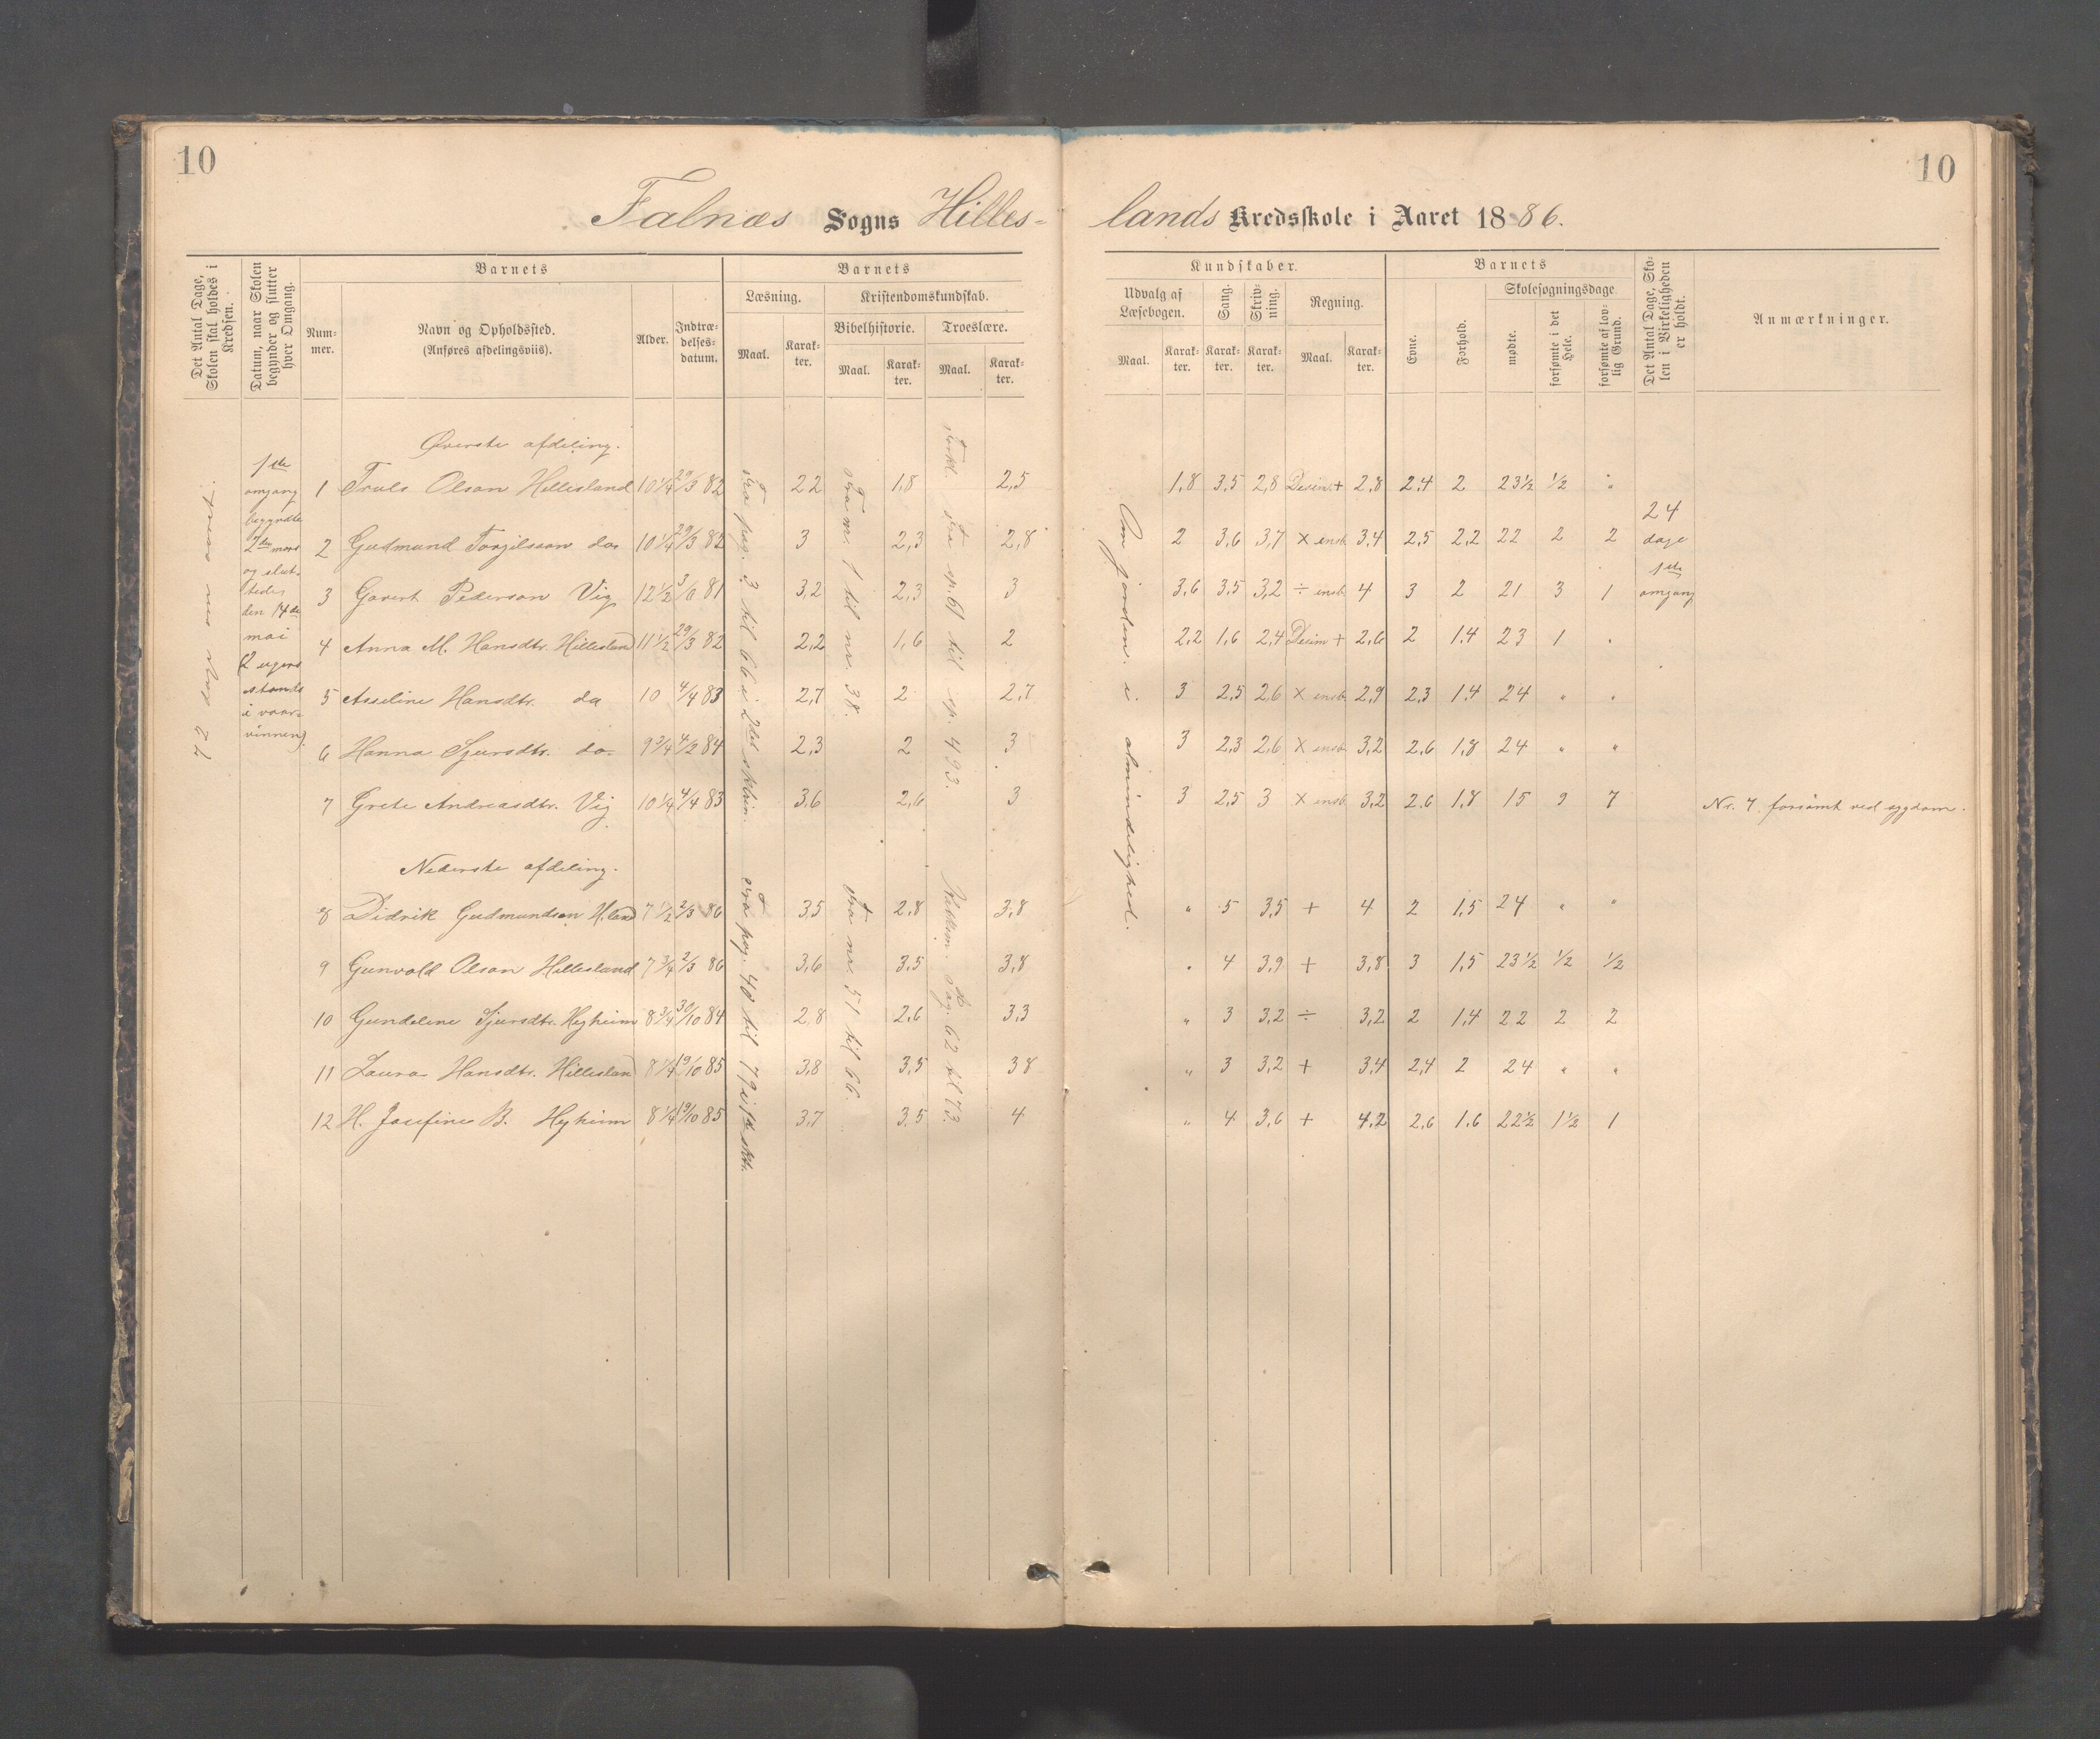 10
10
Falnæs Sogns Hilles-
lands Kredsskole i Aaret 1886.
Det Antal Dage, Skolen skal holdes i Kredsen.
Datum, naar Skolen begynder og slutter hver Omgang.
Barnets
Num-mer.
Navn og Opholdssted. (Anføres afdelingsviis).
Alder.
Indtræ-delses-datum.
Barnets
Læsning.
Maal.
Karak-ter.
Kristendomskundskab.
Bibelhistorie.
Maal.
Karak-ter.
Troeslære.
Maal.
Karak-ter.
Kundskaber.
Udvalg af Læsebogen.
Maal.
Karak-ter.
Sang.
Karak-ter.
Skriv-ning.
Karak-ter.
Regning.
Maal.
Karak-ter.
Barnets
Evne.
Forhold.
Skolesøgningsdage
mødte.
forsømte i det Hele.
forsømte af lov-lig Grund.
Det Antal Dage, Sko-len i Virkeligheden er holdt.
Anmærkninger.
1ste
omgang
begyndte
2den mars
og slut-
tedes
den 14de
mai
(2 ugers
stands
i vaar-
vinnen).
Øverste afdeling.
Fra pag. 3 til 66 i 2det skktrin.
Fra nr. 1 til nr. 38.
Forkl. fra sp. 61 til sp. 493.
Om jorden i almindelighed.
1 Truls Olson Hillesland 10 1/4 29/3 82 2,2 1,8 2,5 1,8 3,5 2,8 Decim + 2,8 2,4 2 23 1/2 1/2 "
2 Gudmund Torgilsson do 10 1/4 29/3 82 3 2,3 2,8 2 3,6 3,7 × ensb. 3,4 2,5 2,2 22 2 2
3 Govert Pederson Vig 12 1/2 81 3,2 2,3 3 3,6 3,5 3,2 ÷ ensb. 4 3 2 21 3 1
4 Anna M. Hansdtr. Hillesland 11 1/2 29/3 82 2,2 1,6 2 2,2 1,6 2,4 Decim + 2,6 2 1,4 23 1 "
5 Asseline Hansdtr. do 10 4/4 83 2,7 2 2,7 3 2,5 2,6 × ensb. 2,9 2,3 1,4 24 " "
6 Hanna Sjursdtr. do. 9 3/4 4/2 84 2,3 2 3 3 2,3 2,6 × ensb. 3,2 2,6 1,8 24 " "
7 Grete Andreasdtr. Vig 10 1/4 4/4 83 3,6 2,6 3 3 2,5 3 × ensb. 3,2 2,6 1,8 15 9 7 Nr. 7. forsømt ved sygdom.
24
dage
1ste
omgang
Nederste afdeling.
Fra pag. 40 til 79 i 1ste skktr.
Fra nr. 51 til 66.
Pag. 62 til 73.
8 Didrik Gudmundson H.land 7 1/2 2/3 86 3,5 2,8 3,8 " 5 3,5 + 4 2 1,5 24 " "
9 Gunvald Olson Hillesland 7 3/4 2/3 86 3,6 3,5 3,8 " 4 3,9 + 3,8 3 1,5 23 1/2 1/2 1/2
10 Gundeline Sjursdtr. Hejheim 8 3/4 30/10 84 2,8 2,6 3,3 " 3 3,2 ÷ 3,2 2 1,4 22 2 2
11 Laura Hansdtr. Hillesland 8 1/4 19/10 85 3,8 3,5 3,8 " 3 3,2 + 3,4 2,4 2 24 " "
12 H. Josefine B. Hejheim 8 1/4 19/10 85 3,7 3,5 4 " 4 3,6 + 4,2 2,6 1,6 22 1/2 1 1/2 1